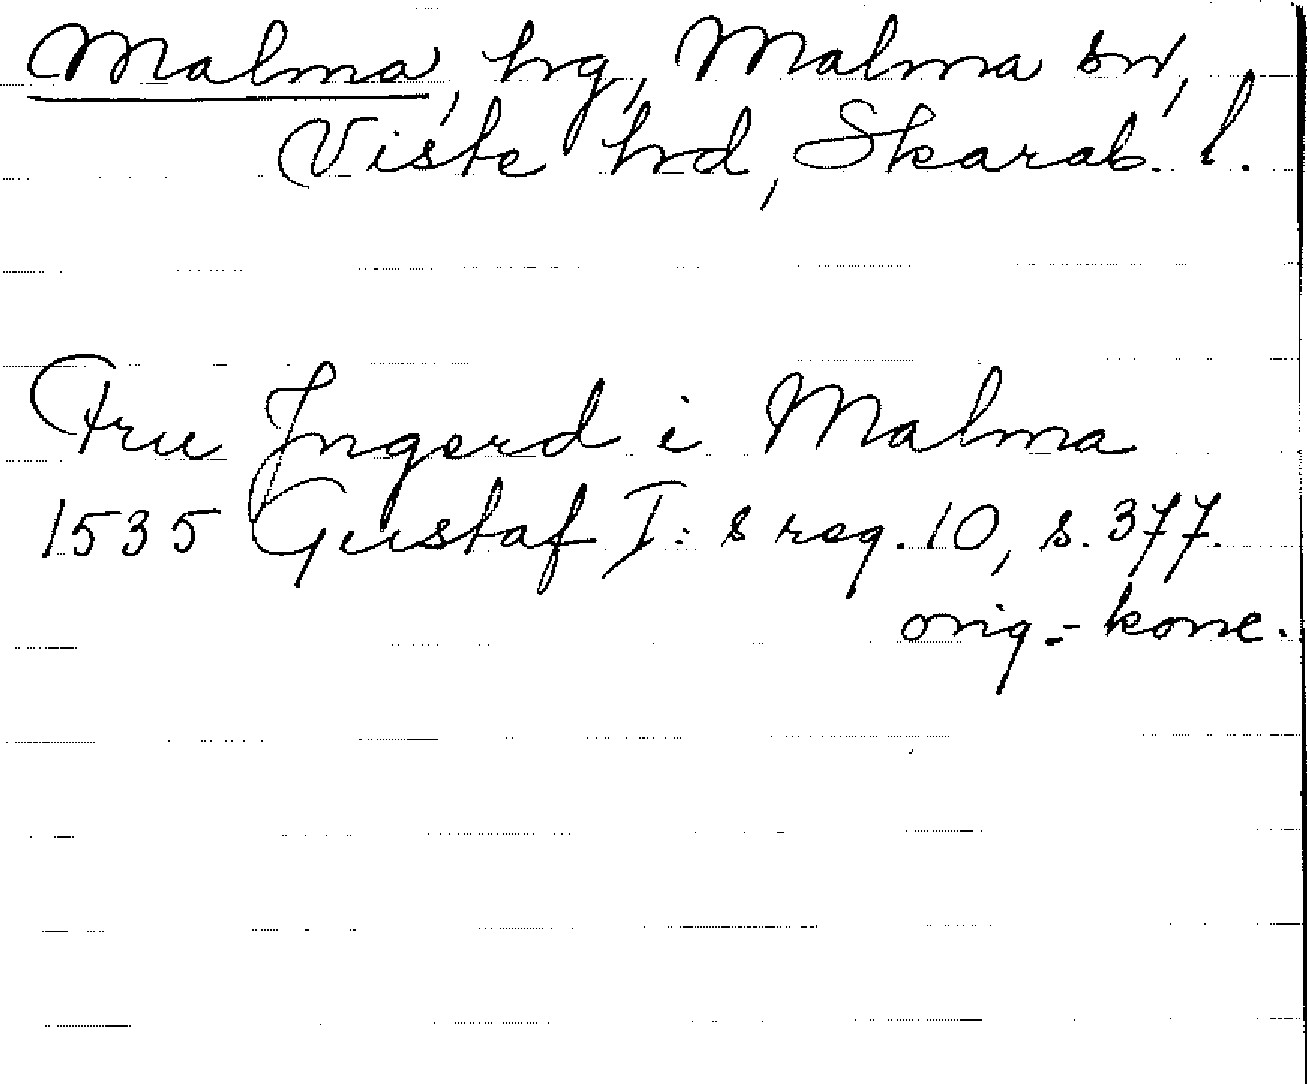 Malma, hrg, Malma sn,
Viste hrd, Skarab. l.
Fru Jngerd i Malma
1535 Gustaf I: s reg. 10, s. 377.
orig.- konc.